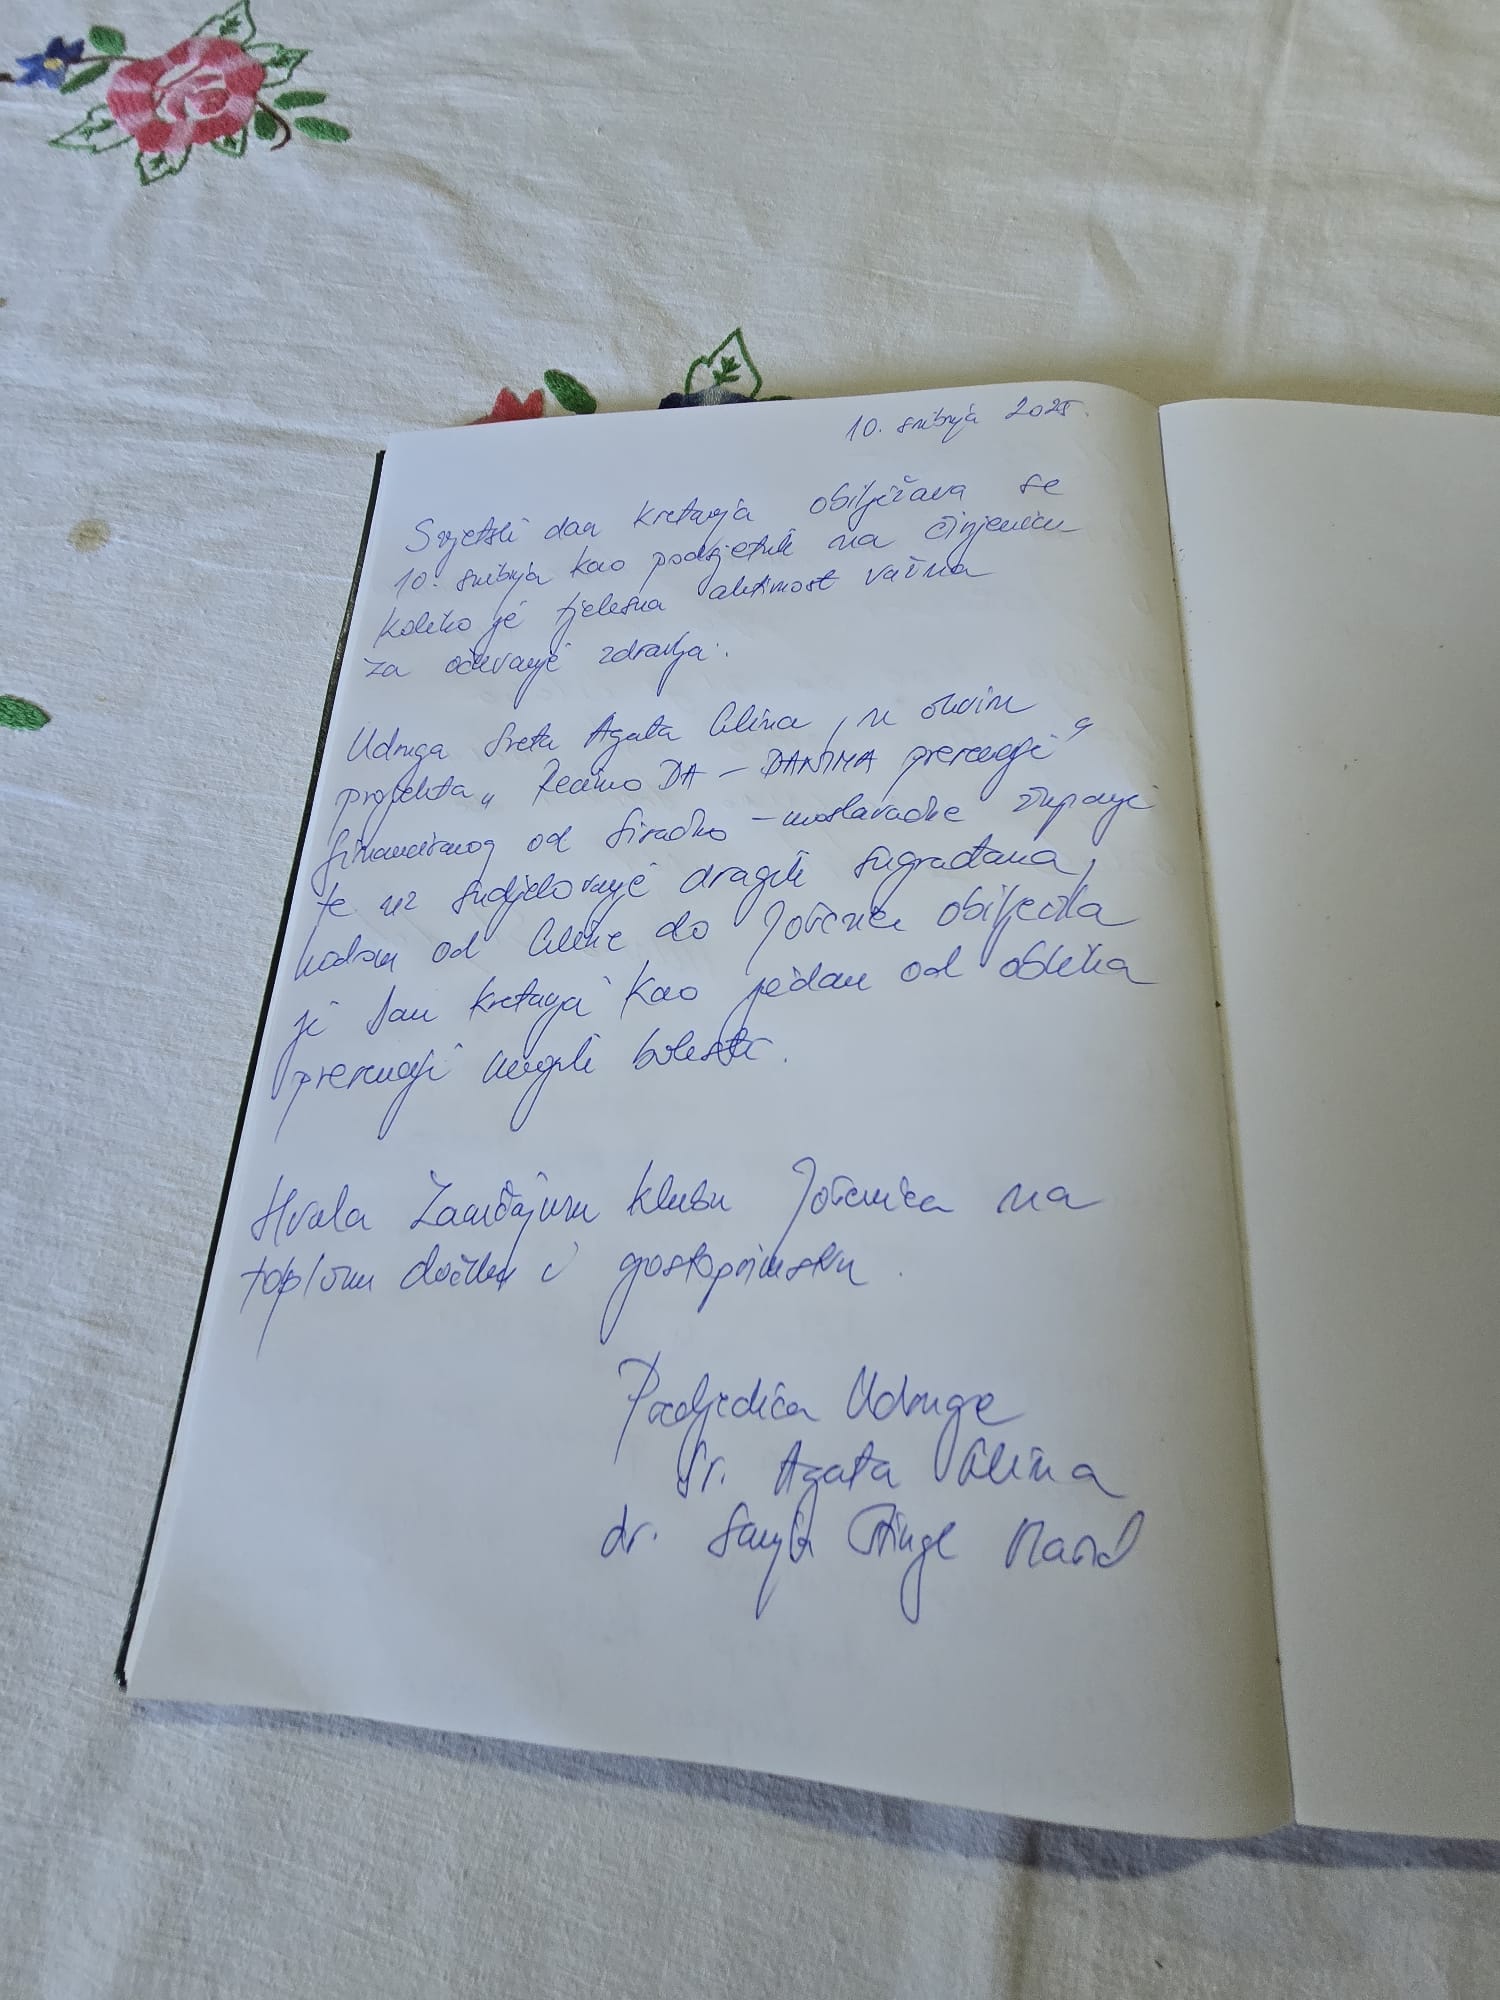 10. svibnja 2025.
Svjetski dan kretanja obilježava se
10. svibnja kao podsjetnik na činjenicu
koliko je tjelesna aktivnost važna
za očuvanje zdravlja.
Udruga Sveta Agata Glina, u okviru
projekta „Recimo DA - DANIMA prevencije"
financiranog od Sisačko-moslavačke županije
te uz sudjelovanje dragih sugrađana,
hodom od Gline do Jošavice obilježila
je Dan kretanja kao jedan od oblika
prevencije mnogih bolesti.
Hvala Zavičajnom klubu Jošavica na
toplom dočeku i gostoprimstvu.
Predsjednica Udruge
Sv. Agata Glina
dr. Sanja